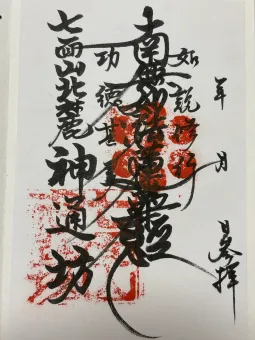 年 月 日参拝
如説修行
南無妙法蓮華経
功徳甚
七面山北麓 神通坊